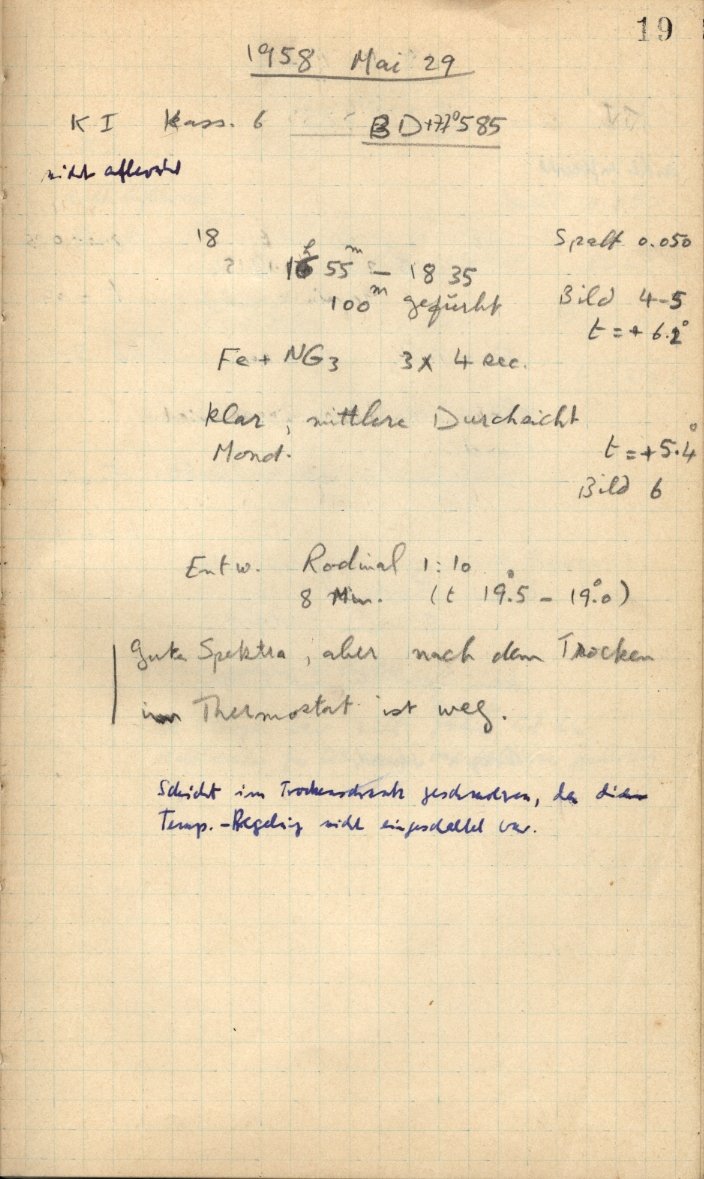 19
1958 Mai 29
K I Kass. 6 BD+77°585
nicht
18 Spalt 0.050
16h 55m – 18 35
100m geführt Bild 4-5
t = + 6.2°
Fe + NG3 3 x 4 sec.
klar, mittlere Durchsicht
Mond. t = +5.4°
Bild 6
Entw. Rodinal 1:10
8 Min. (t 19°.5 – 19°.0)
Gute Spektra, aber nach dem Trocken
im Thermostat ist weg.
Schicht im Trockenschrank geschmolzen, da die
Temp.-Regelung nicht eingeschaltet war.